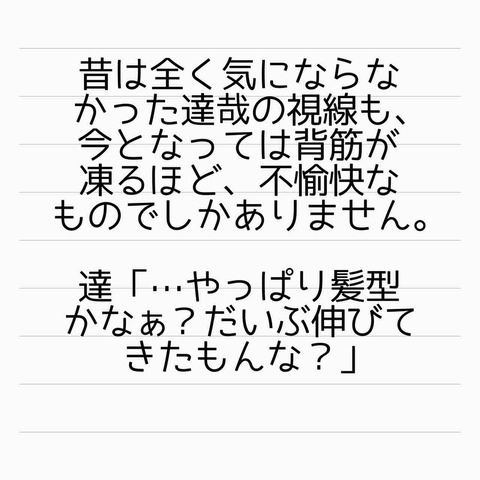 昔は全く気にならな
かった達哉の視線も、
今となっては背筋が
凍るほど、不愉快な
ものでしかありません。
達「…やっぱり髪型
かなぁ？だいぶ伸びて
きたもんな？」